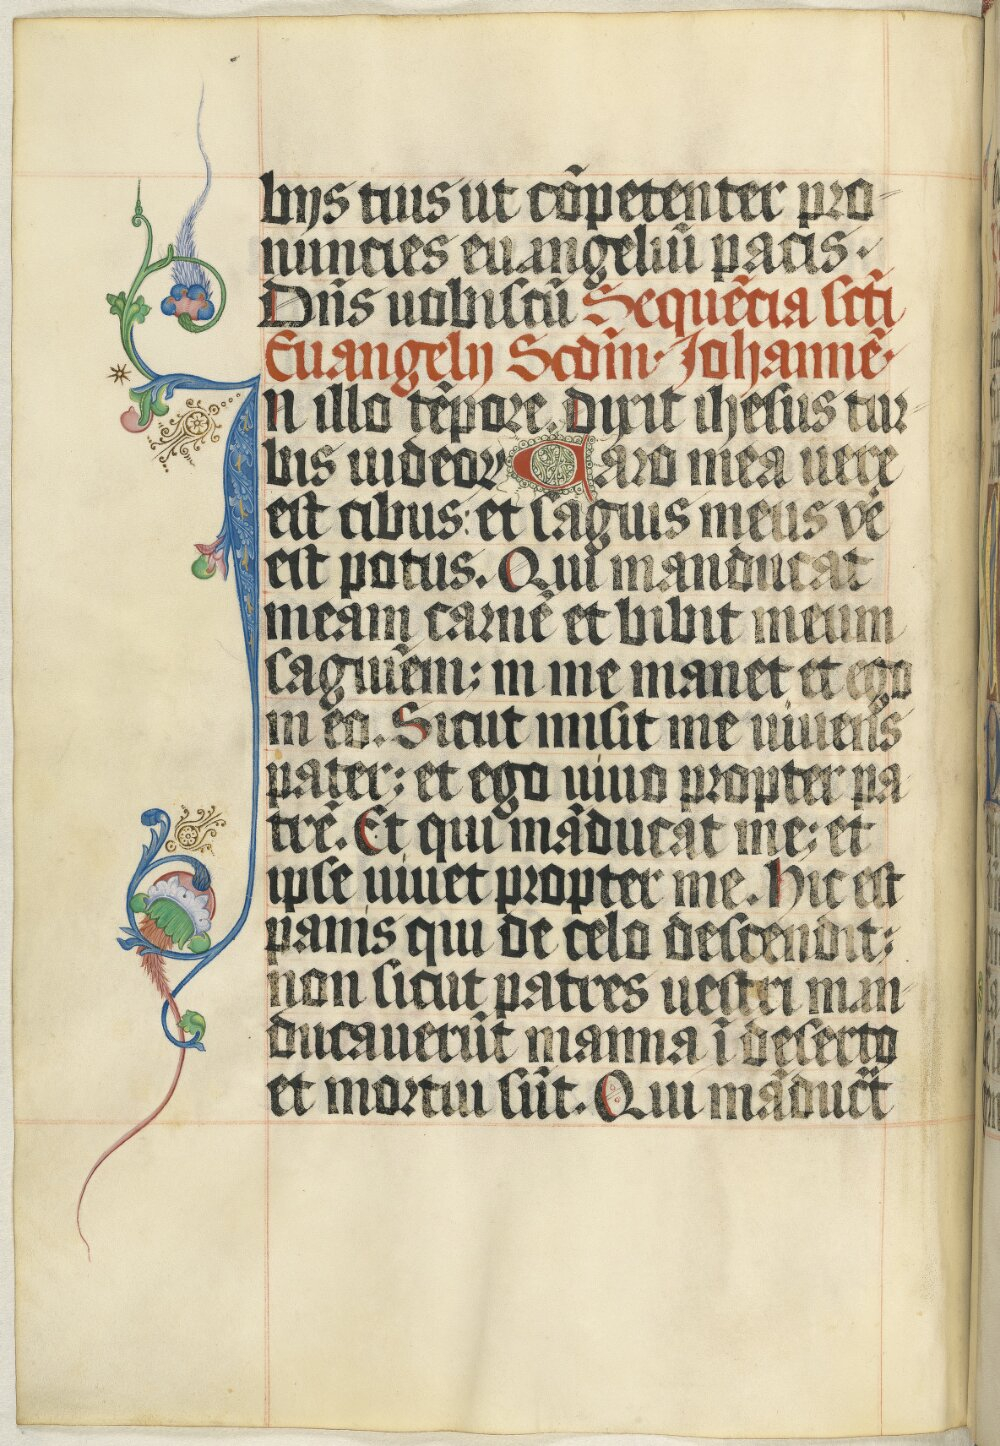 bijs tuis ut cõpetenter pro-
nuncies euangeliũ pacis.
Dñs uobiscũ Sequẽcia scti
Euangelij Scdm̃. Johannẽ.
In illo tẽpore. dixit ihesus tur-
bis iudeor Caro mea uere
est cibus: et sãguis meus vẽ
est potus. Qui manducat
meam carnẽ et bibit meum
sãguinem: in me manet et ego
in eo. Sicut misit me uiuens
pater: et ego uiuo propter pa-
trẽ. Et qui mãducat me: et
ipse uiuet propter me. Hic est
panis qui de celo descendit:
non sicut patres uestri man-
ducauerũt manna ĩ deserto
et mortui sũt. Qui mãduc̃t